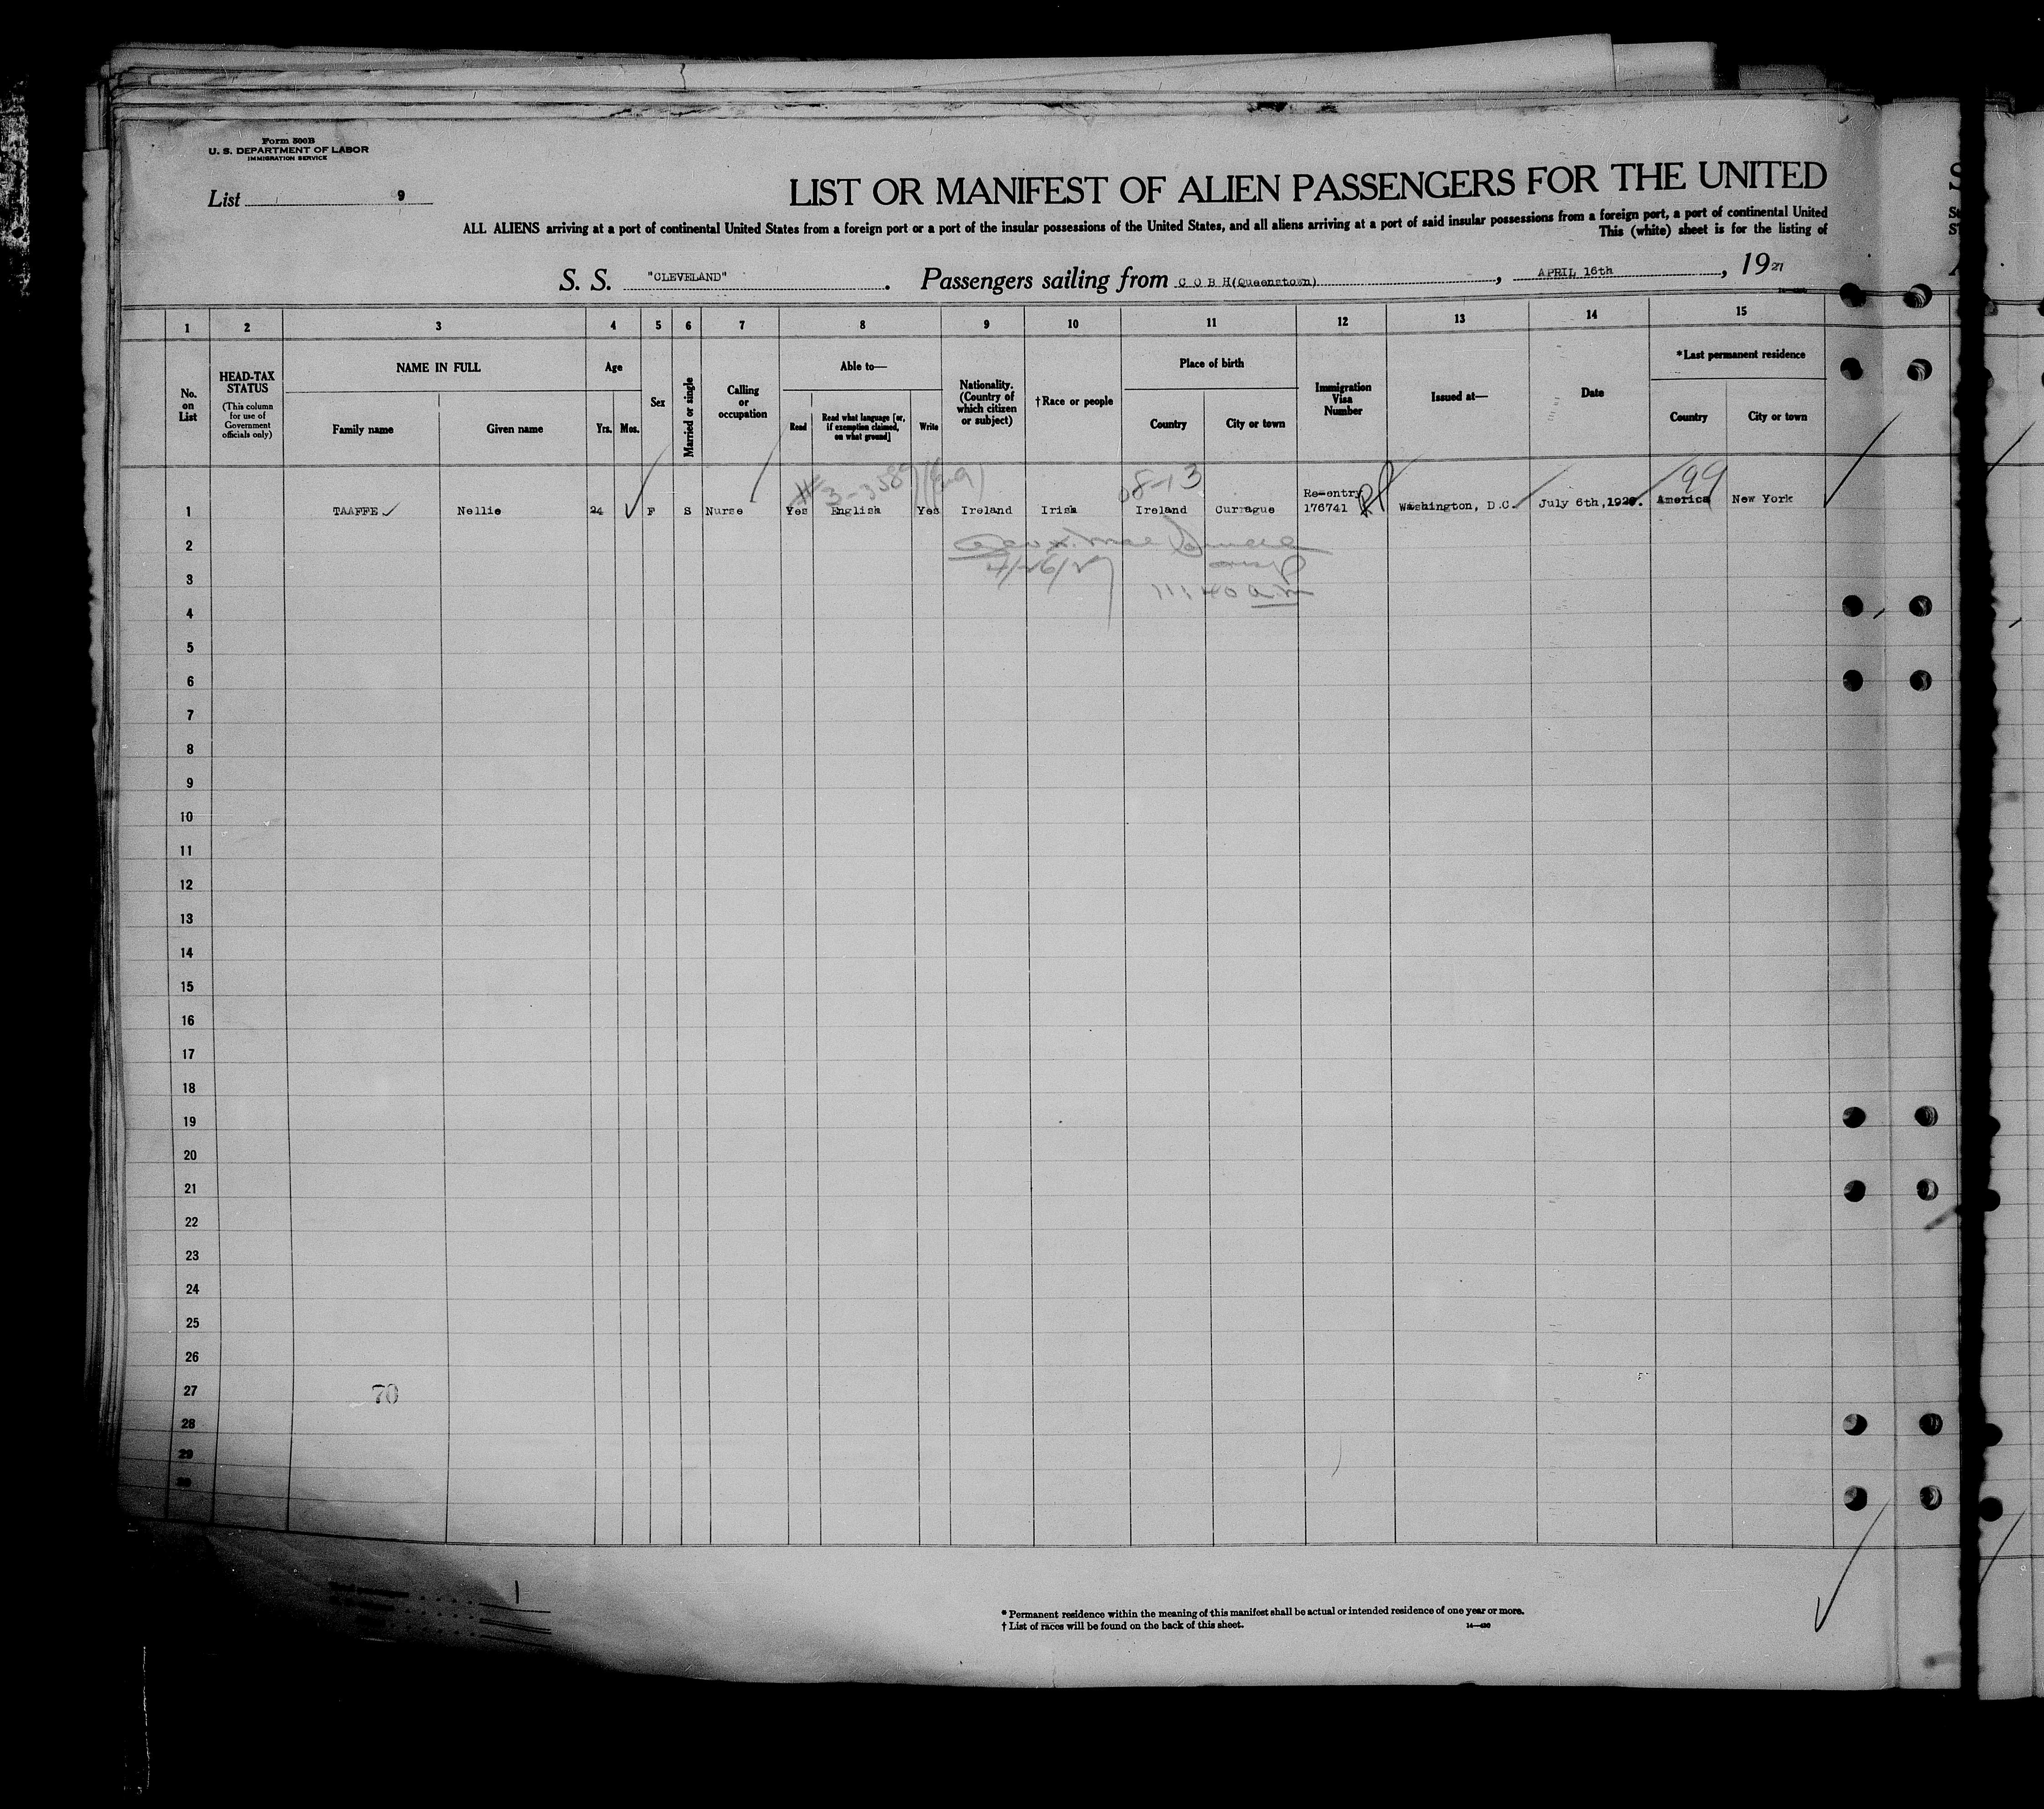 Form 500B
U. S. DEPARTMENT OF LABOR
IMMIGRATION SERVICE
List 9
LIST OR MANIFEST OF ALIEN PASSENGERS FOR THE UNITED
ALL ALIENS arriving at a port of continental United States from a foreign port or a port of the insular possessions of the United States, and all aliens arriving at a port of said insular possessions from a foreign port, a port of continental United
This (white) sheet is for the listing of
S. S. "CLEVELAND". Passengers sailing from C O B H(Queenstown), APRIL 16th, 1927
1 2 3 4 5 6 7 8 9 10 11 12 13 14 15
No. on List
HEAD-TAX STATUS
(This column for use of Government officials only)
NAME IN FULL
Family name
Given name
Age
Yrs.
Mos.
Sex
Married or single
Calling or occupation
Able to—
Read
Read what language [or, if exemption claimed, on what ground]
Write
Nationality. (Country of which citizen or subject)
†Race or people
Place of birth
Country
City or town
Immigration Visa Number
Issued at—
Date
*Last permanent residence
Country
City or town
08-13
99
Re-entry
1 TAAFFE Nellie 24 F S Nurse Yes English Yes Ireland Irish Ireland Currague 176741 Washington, D.C. July 6th, America New York
2
4/26/27
3
11:40 am
4
5
6
7
8
9
10
11
12
13
14
15
16
17
18
19
20
21
22
23
24
25
26
27
70
28
29
30
1
* Permanent residence within the meaning of this manifest shall be actual or intended residence of one year or more.
† List of races will be found on the back of this sheet.